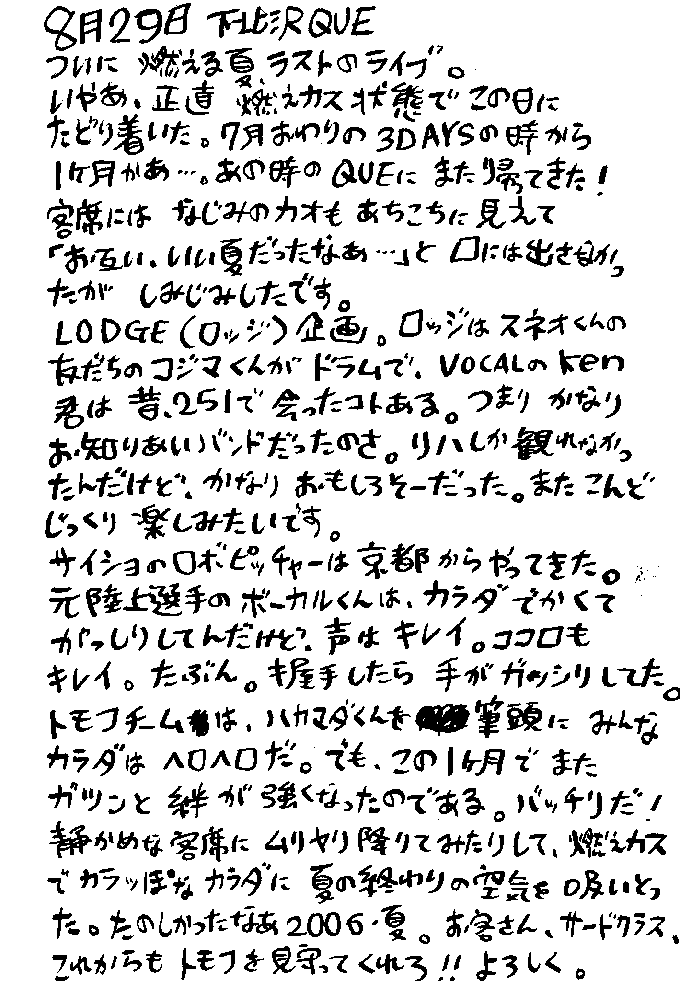 8月29日 下北沢QUE
ついに 燃える夏、ラストのライブ。
いやあ、正直 燃えカス状態でこの日に
たどり着いた。7月おわりの3DAYSの時から
1ヶ月かあ…。あの時のQUEにまた帰ってきた!
客席には なじみのカオも あちこちに見えて
「お互い、いい夏だったなあ…」と 口には出さなかっ
たが しみじみしたです。
LODGE(ロッジ)企画。ロッジはスネオくんの
友だちのコジマくんがドラムで、VOCALのken
君は 昔、251で会ったコトある。つまり かなり
お知りあいバンドだったのさ。リハしか観れなかっ
たんだけど、かなり おもしろそーだった。またこんど
じっくり 楽しみたいです。
サイショのロボピッチャーは京都からやってきた。
元陸上選手のボーカルくんは、カラダでかくて
がっしりしてんだけど、声は キレイ。ココロも
キレイ。たぶん。握手したら 手がガッシリしてた。
トモフチームは、ハカマダくんを筆頭に みんな
カラダはヘロヘロだ。でも、この1ヶ月で また
ガツンと 絆が 強くなったのである。バッチリだ!
静かめな客席に ムリヤリ降りてみたりして、燃えカス
でカラッぽなカラダに 夏の終わりの空気を吸いとっ
た。たのしかったなあ2006・夏。お客さん、サードクラス、
これからも トモフを見守ってくれろ!! よろしく。